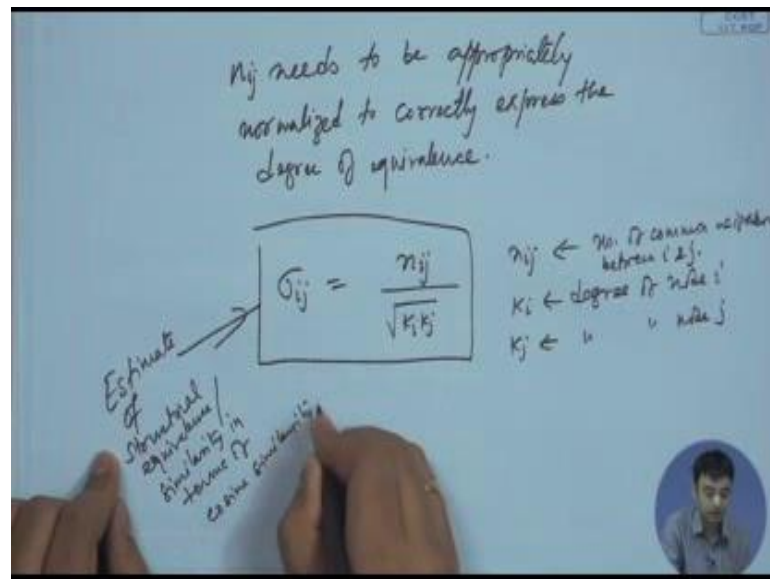 nij needs to be appropriately
normalized to correctly express the
degree of equivalence.
σij = nij / √KiKj
nij ← no. of common neighbors
between i & j.
Ki ← degree of node i
Kj ← " " node j
Estimate
of
structural
equivalence/
similarity in
terms of
cosine similarity